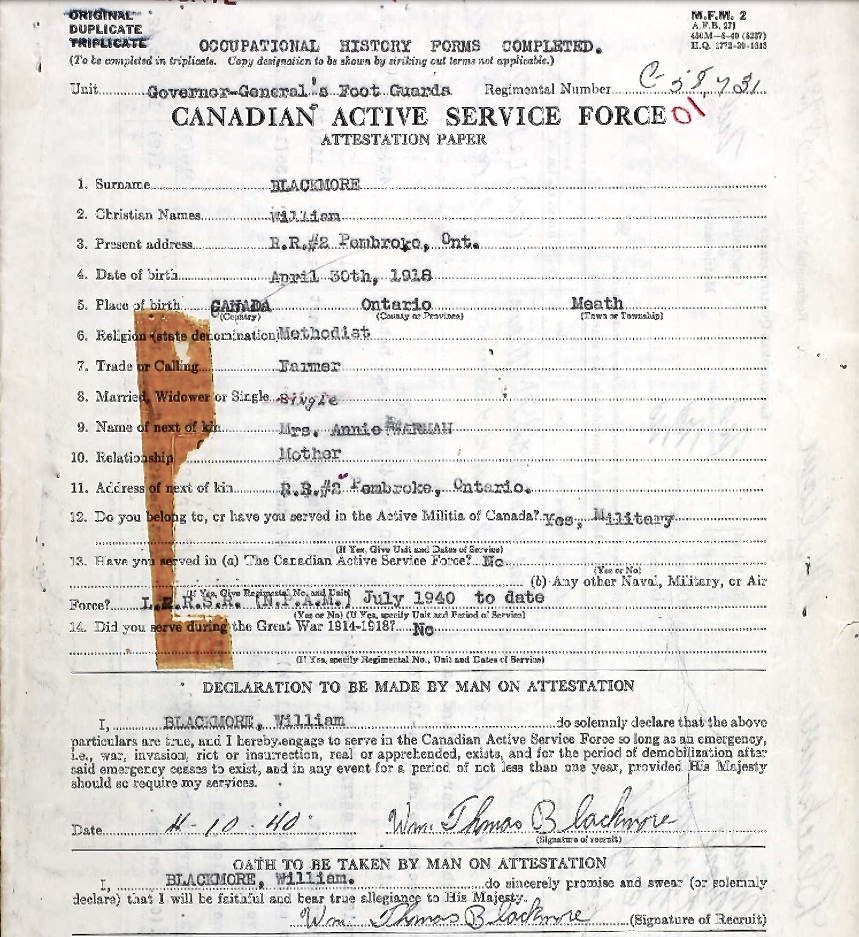 ORIGINAL
DUPLICATE
TRIPLICATE
M.F.M. 2
A.F.B. 271
450M—8-40 (8287)
H.Q. 1772-39-1343
OCCUPATIONAL HISTORY FORMS COMPLETED.
(To be completed in triplicate. Copy designation to be shown by striking out terms not applicable.)
Unit Governor-General's Foot Guards Regimental Number
CANADIAN ACTIVE SERVICE FORCE 01
ATTESTATION PAPER
1. Surname BLACKMORE
2. Christian Names William
3. Present address R.R.#2 Pembroke, Ont.
4. Date of birth April 30th, 1918
5. Place of birth CANADA Ontario Meath
(Country) (County or Province) (Town or Township)
6. Religion (state denomination) Methodist
7. Trade or Calling Farmer
8. Married, Widower or Single Single
9. Name of next of kin Mrs. Annie WARMAN
10. Relationship Mother
11. Address of next of kin R.R.#2 Pembroke, Ontario.
12. Do you belong to, or have you served in the Active Militia of Canada? Yes, Military
(If Yes, Give Unit and Dates of Service)
13. Have you served in (a) The Canadian Active Service Force? No
(Yes or No)
(If Yes, Give Regimental No. and Unit) (b) Any other Naval, Military, or Air
Force? (N.P.A.M.) July 1940 to date
(Yes or No) (If Yes, specify Unit and Period of Service)
14. Did you serve during the Great War 1914-1918? No
(If Yes, specify Regimental No., Unit and Dates of Service)
DECLARATION TO BE MADE BY MAN ON ATTESTATION
I, BLACKMORE, William do solemnly declare that the above
particulars are true, and I hereby engage to serve in the Canadian Active Service Force so long as an emergency,
i.e., war, invasion, riot or insurrection, real or apprehended, exists, and for the period of demobilization after
said emergency ceases to exist, and in any event for a period of not less than one year, provided His Majesty
should so require my services.
Date 4-10-40 Wm. Thmas Blackmore
(Signature of recruit)
OATH TO BE TAKEN BY MAN ON ATTESTATION
I, BLACKMORE, William. do sincerely promise and swear (or solemnly
declare) that I will be faithful and bear true allegiance to His Majesty.
Wm. Thmas Blackmore (Signature of Recruit)